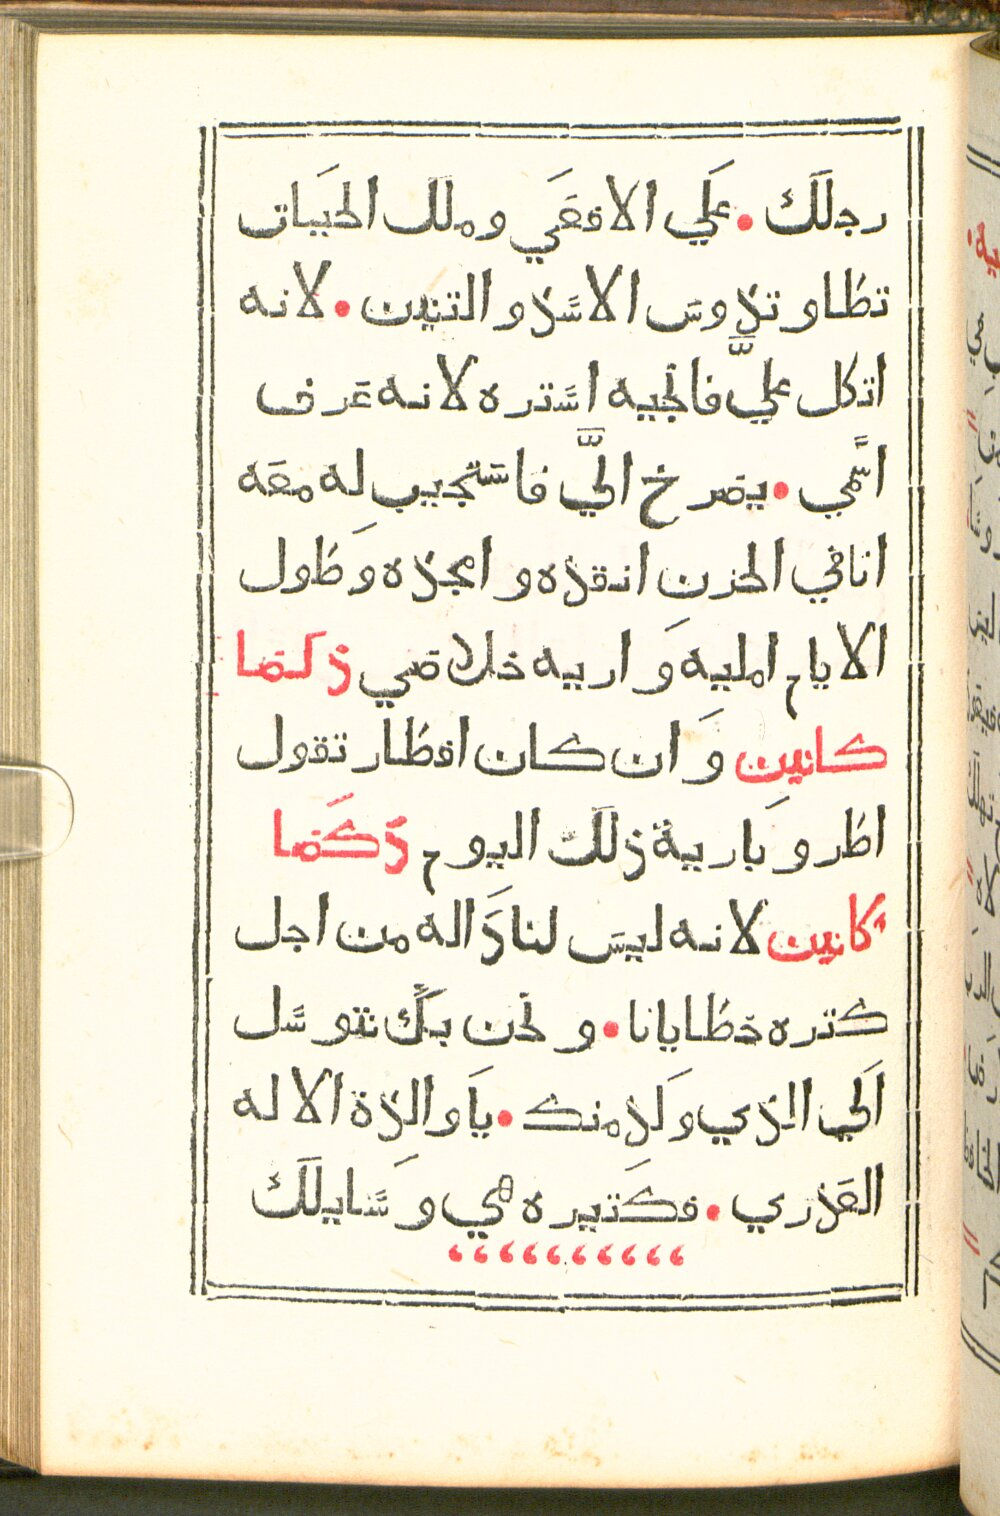 رجلك • علي الافعي وملك الحيات
تطا وتدوس الاسد والتنين • لانه
اتكل عليّ فانجيه استره لانه عرف
اسمي • يصرخ اليّ فاستجيب له معه
انا في الحزن انقذه وامجده وطول
الايام املیه واريه خلاصي ذكصا
كانين وان كان افطار تقول
اطروبارية ذلك اليوم ذكصا
كانين لانه ليس لنا دالة من اجل
كثرة خطايانا • ونحن بك نتوسل
الي الذي ولد منك • يا والدة الاله
العذري • فكثيرة هي وسايلك